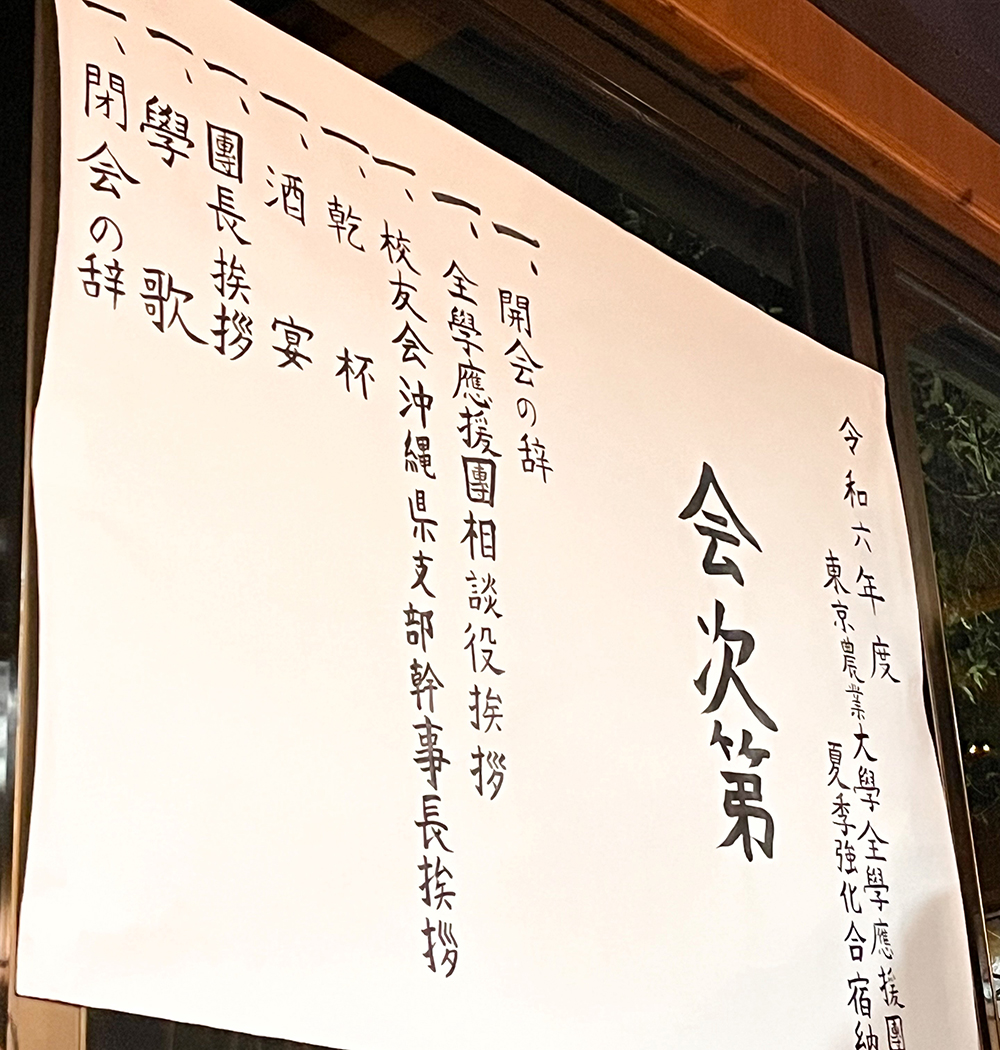 令和六年度
東京農業大學全學應援團
夏季強化合宿納
会次第
一、開会の辞
一、全學應援團相談役挨拶
一、校友会沖縄県支部幹事長挨拶
一、乾杯
一、酒宴
一、團長挨拶
一、學歌
一、閉会の辞